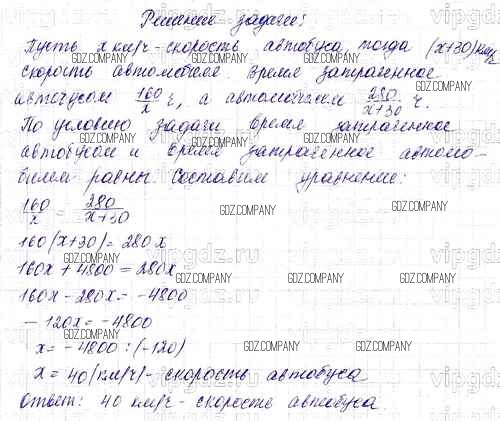 Решение задачи:
Пусть x км/ч - скорость автобуса, тогда (x+30) км/ч
скорость автомобиля. Время затраченное
автобусом 160/x ч, а автомобилем 280/x+30 ч.
По условию задачи время затраченное
автобусом и время затраченное автомо-
билем равны. Составим уравнение:
160/x = 280/x+30
160(x+30)=280x
160x+4800=280x
160x-280x=-4800
-120x=-4800
x=-4800:(-120)
x=40(км/ч)- скорость автобуса
Ответ: 40 км/ч - скорость автобуса.
GDZ.COMPANY
vipgdz.ru